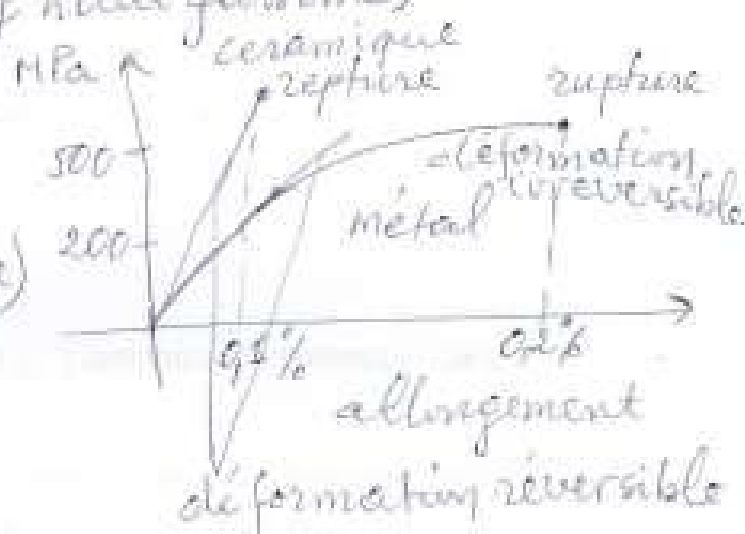 MPa
ceramique
repture
rupture
500
déformation
irreversible
métal
200
0,2%
allongement
déformation réversible